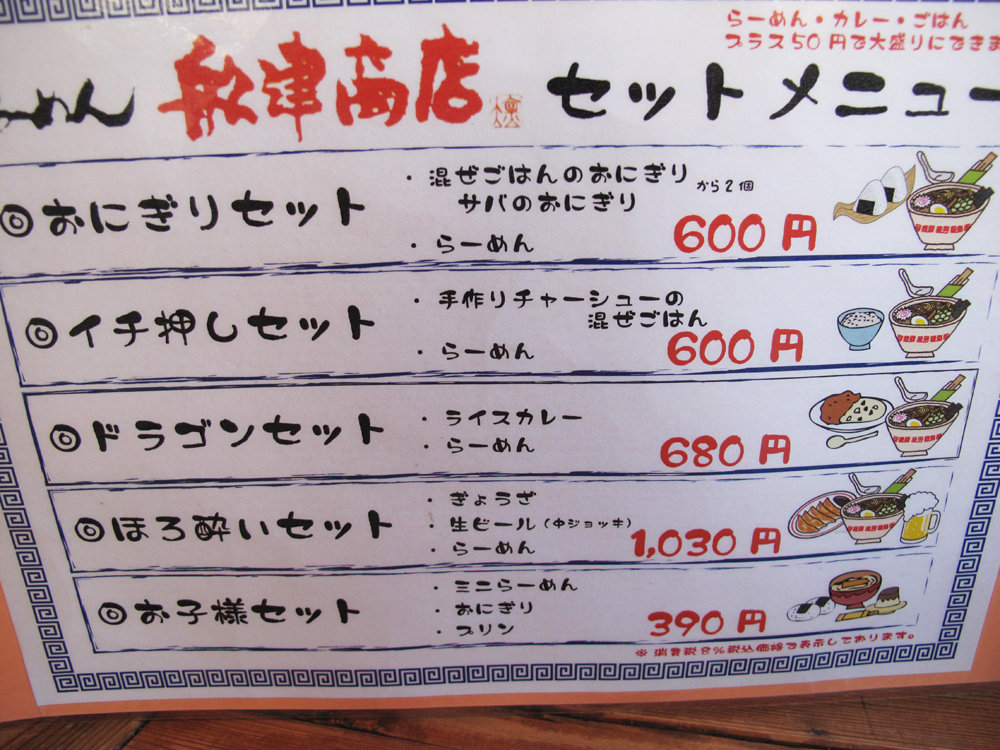 らーめん・カレー・ごはん
プラス50円で大盛りにできま
らーめん 舩津商店 セットメニュー
◎おにぎりセット
・混ぜごはんのおにぎり
サバのおにぎり
から2個
・らーめん
600円
◎イチ押しセット
・手作りチャーシューの
混ぜごはん
・らーめん
600円
◎ドラゴンセット
・ライスカレー
・らーめん
680円
◎ほろ酔いセット
・ぎょうざ
・生ビール(中ジョッキ)
・らーめん
1,030円
◎お子様セット
・ミニらーめん
・おにぎり
・プリン
390円
※消費税8%税込価格で表示しております。